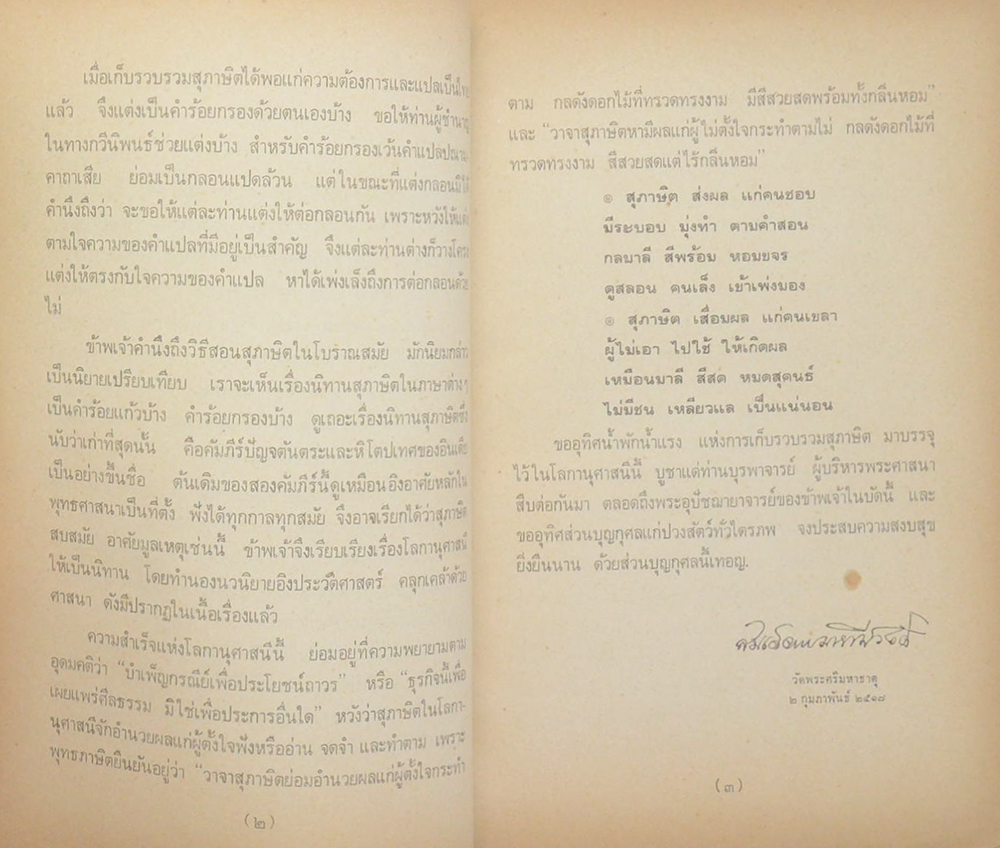 เมื่อเก็บรวบรวมสุภาษิตได้พอแก่ความต้องการและแปลเป็นไทย
แล้ว จึงแต่งเป็นคำร้อยกรองด้วยตนเองบ้าง ขอให้ท่านผู้ชำนาญ
ในทางกวีนิพนธ์ช่วยแต่งบ้าง สำหรับคำร้อยกรองเว้นคำแปล
คาถาเสีย ย่อมเป็นกลอนแปดล้วน แต่ในขณะที่แต่งกลอนมิได้
คำนึงถึงว่า จะขอให้แต่ละท่านแต่งให้ต่อกลอนกัน เพราะหวังให้แต่ง
ตามใจความของคำแปลที่มีอยู่เป็นสำคัญ จึงแต่ละท่านต่างก็วางโครง
แต่งให้ตรงกับใจความของคำแปล หาได้เพ่งเล็งถึงการต่อกลอนด้วย
ไม่
ข้าพเจ้าคำนึงถึงวิธีสอนสุภาษิตในโบราณสมัย มักนิยมกล่าว
เป็นนิยายเปรียบเทียบ เราจะเห็นเรื่องนิทานสุภาษิตในภาษาต่างๆ
เป็นคำร้อยแก้วบ้าง คำร้อยกรองบ้าง ดูเถอะเรื่องนิทานสุภาษิตซึ่ง
นับว่าเก่าที่สุดนั้น คือคัมภีร์ปัญจตันตระและหิโตปเทศของอินเดีย
เป็นอย่างขึ้นชื่อ ต้นเดิมของสองคัมภีร์นี้ดูเหมือนอิงอาศัยหลักใน
พุทธศาสนาเป็นที่ตั้ง ฟังได้ทุกกาลทุกสมัย จึงอาจเรียกได้ว่าสุภาษิต
สบสมัย อาศัยมูลเหตุเช่นนี้ ข้าพเจ้าจึงเรียบเรียงเรื่องโลกานุศาสนี
ให้เป็นนิทาน โดยทำนองนวนิยายอิงประวัติศาสตร์ คลุกเคล้าด้วย
ศาสนา ดังมีปรากฏในเนื้อเรื่องแล้ว
ความสำเร็จแห่งโลกานุศาสนีนี้ ย่อมอยู่ที่ความพยายามตาม
อุดมคติว่า “บำเพ็ญกรณีย์เพื่อประโยชน์ถาวร” หรือ “ธุรกิจนี้เพื่อ
เผยแพร่ศีลธรรม มิใช่เพื่อประการอื่นใด” หวังว่าสุภาษิตในโลกา-
นุศาสนีจักอำนวยผลแก่ผู้ตั้งใจฟังหรืออ่าน จดจำ และทำตาม เพราะ
พุทธภาษิตยืนยันอยู่ว่า “วาจาสุภาษิตย่อมอำนวยผลแก่ผู้ตั้งใจกระทำ
(๒)
ตาม กลดังดอกไม้ที่ทรวดทรงงาม มีสีสวยสดพร้อมทั้งกลิ่นหอม”
และ “วาจาสุภาษิตหามีผลแก่ผู้ไม่ตั้งใจกระทำตามไม่ กลดังดอกไม้ที่
ทรวดทรงงาม สีสวยสดแต่ไร้กลิ่นหอม”
๏ สุภาษิต ส่งผล แก่คนชอบ
มีระบอบ มุ่งทำ ตามคำสอน
กลมาลี สีพร้อม หอมขจร
ดูสลอน คนเล็ง เข้าเพ่งมอง
๏ สุภาษิต เสื่อมผล แก่คนเขลา
ผู้ไม่เอา ไปใช้ ให้เกิดผล
เหมือนมาลี สีสด หมดสุคนธ์
ไม่มีชน เหลียวแล เป็นแน่นอน
ขออุทิศน้ำพักน้ำแรง แห่งการเก็บรวบรวมสุภาษิต มาบรรจุ
ไว้ในโลกานุศาสนีนี้ บูชาแด่ท่านบุรพาจารย์ ผู้บริหารพระศาสนา
สืบต่อกันมา ตลอดถึงพระอุปัชฌายาจารย์ของข้าพเจ้าในบัดนี้ และ
ขออุทิศส่วนบุญกุศลแก่ปวงสัตว์ทั่วไตรภพ จงประสบความสงบสุข
ยิ่งยืนนาน ด้วยส่วนบุญกุศลนี้เทอญ.
วัดพระศรีมหาธาตุ
๒ กุมภาพันธ์ ๒๕๑๘
(๓)